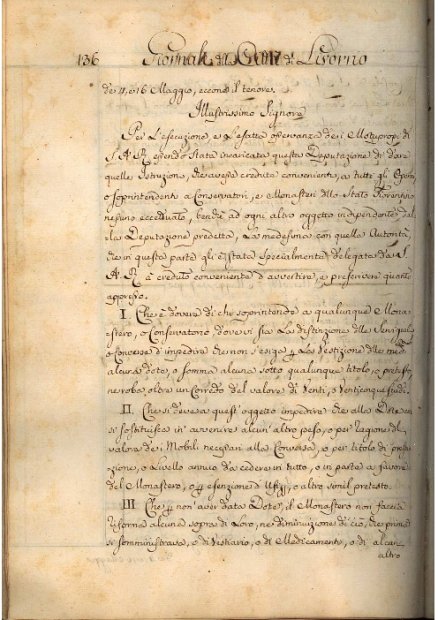 136 Giornale di Livorno
de 11, e 16 Maggio, eccone il tenore.
Illustrissimo Signore
Per L'esecuzione, e L'esatta osservanza dei Motuproprj di
S. A. R. essendo stata incaricata questa Deputazione di dare
quelle Istruzioni, che avesse credute convenienti, a tutti gli Operaj,
o soprintendenti a Conservatorj, e Monasteri dello Stato Fiorentino
nessuno eccettuato, benchè ad ogni altro oggetto indipendente dal
la Deputazione predetta, La medesima con quella Autorità,
che in questa parte gli è stata specialmente delegata da S.
A. R. à creduto conveniente d'avvertire, e prescrivere quanto
appresso.
I. Che è dovere di chi soprintende a qualunque Mona
stero, o Conservatorio dove vi sia La distinzione delle Serviziali,
o Converse d'impedire che non s'esiga p La Vestizione delle med.e
alcuna dote, o somma alcuna sotto qualunque titolo, o pretesto,
ne roba, oltre un Corredo del valore di Venti, o Venticinque scudi.
II. Che si deve a quest'oggetto impedire che alla Dote non
si sostituisca in avvenire alcun'altro peso, o per ragione di
valore dei Mobili necessari alla Conversa, o per titolo di presta
zione, o Livello annuo da cedere in tutto, o in parte a favore
del Monastero, o p esenzione d'Ufizj, o altro simil pretesto.
III Che p non aver data Dote, il Monastero non faccia
riforma alcuna sopra di Loro, ne diminuzione di ciò, che prima
si somministrava, o di Vestiario, o di Medicamenti, o di alcun
altro